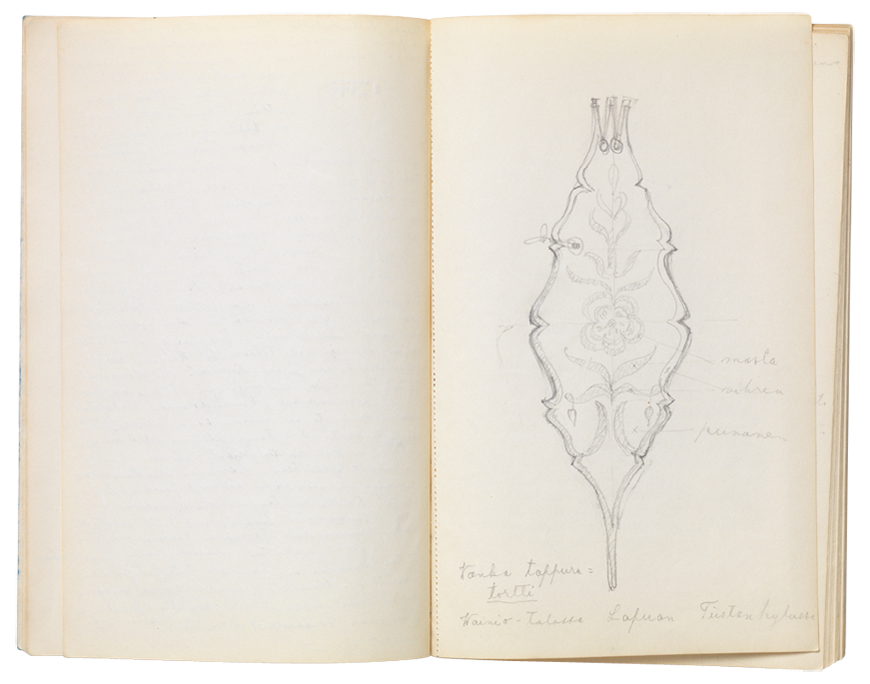 musta
vihreä
punanen
Vanha tappura=
tortti
Wainio-talosta Lapuan Tiistenkylässä